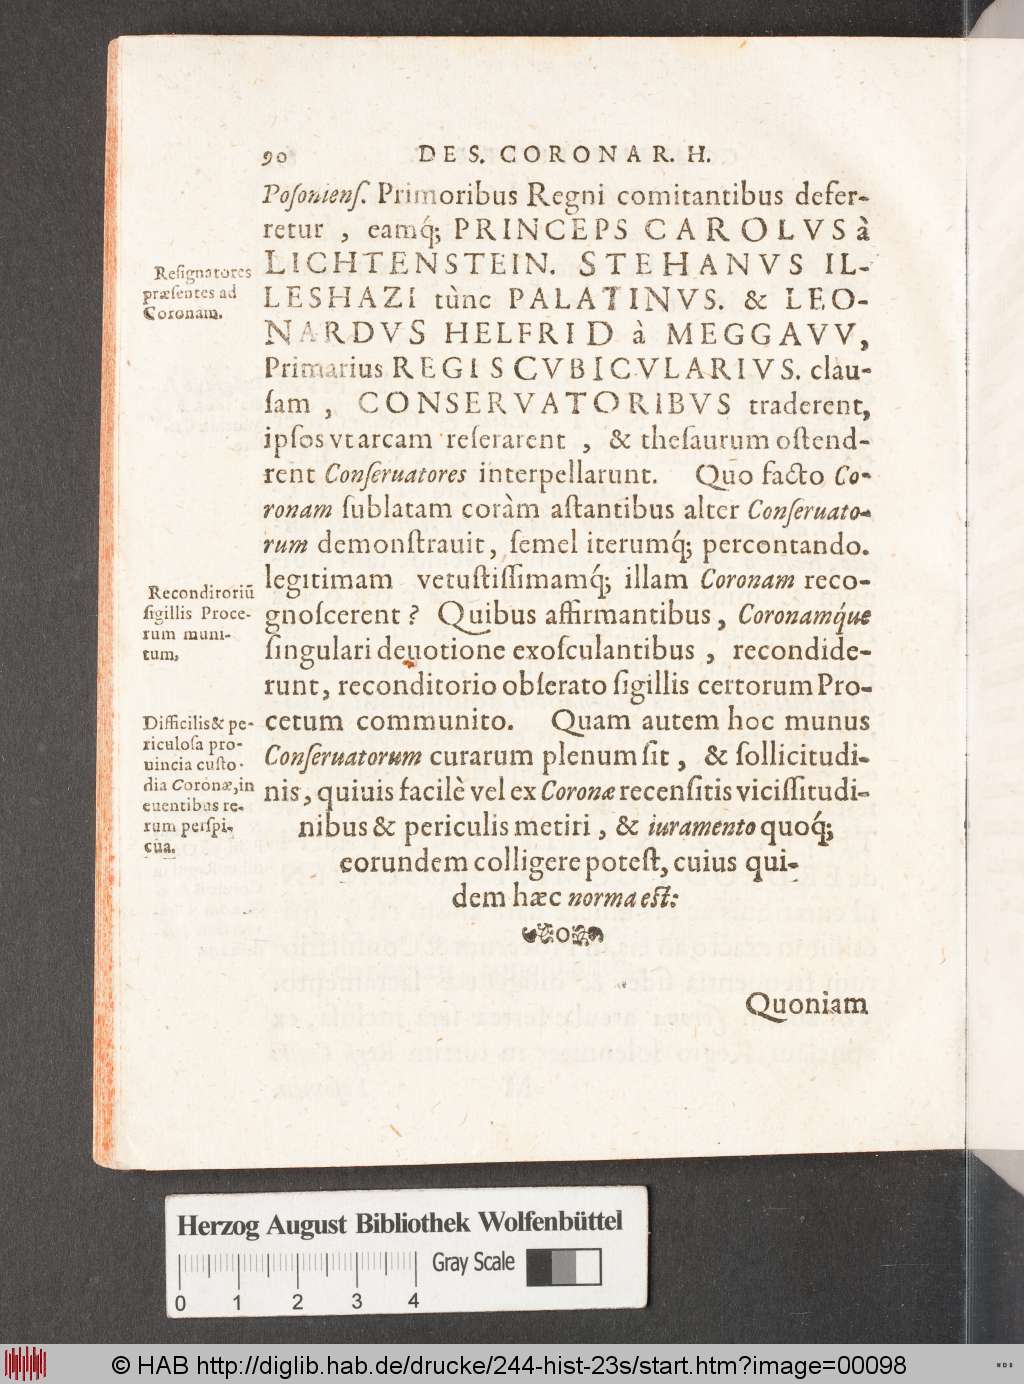 90 DE S. CORONA R. H.
Poſonienſ. Primoribus Regni comitantibus defer-
retur , eamq́; PRINCEPS CAROLVS à
LICHTENSTEIN. STEHANVS IL-
LESHAZI tùnc PALATINVS. & LEO-
NARDVS HELFRID à MEGGAVV,
Primarius REGIS CVBICVLARIVS. clau-
ſam , CONSERVATORIBVS traderent,
ipſos vt arcam reſerarent , & theſaurum oſtend-
rent Conſeruatores interpellarunt. Quo facto Co-
ronam ſublatam coràm aſtantibus alter Conſeruato-
rum demonſtrauit, ſemel iterumq́; percontando.
legitimam vetuſtiſſimamq́; illam Coronam reco-
gnoſcerent ? Quibus affirmantibus , Coronamq́ue
ſingulari deuotione exoſculantibus , recondide-
runt, reconditorio obſerato ſigillis certorum Pro-
cetum communito. Quam autem hoc munus
Conſeruatorum curarum plenum ſit , & ſollicitudi-
nis, quiuis facilè vel ex Coronæ recenſitis viciſſitudi-
nibus & periculis metiri , & iuramento quoq́;
eorundem colligere poteſt, cuius qui-
dem hæc norma eſt:
Quoniam
Reſignatores
præſentes ad
Coronam.
Reconditoriũ
ſigillis Proce-
rum muni-
tum,
Difficilis & pe-
riculoſa pro-
uincia cuſto-
dia Coronæ, in
euentibus re-
rum perſpi-
cua.
Herzog August Bibliothek Wolfenbüttel
Gray Scale
0 1 2 3 4
© HAB http://diglib.hab.de/drucke/244-hist-23s/start.htm?image=00098